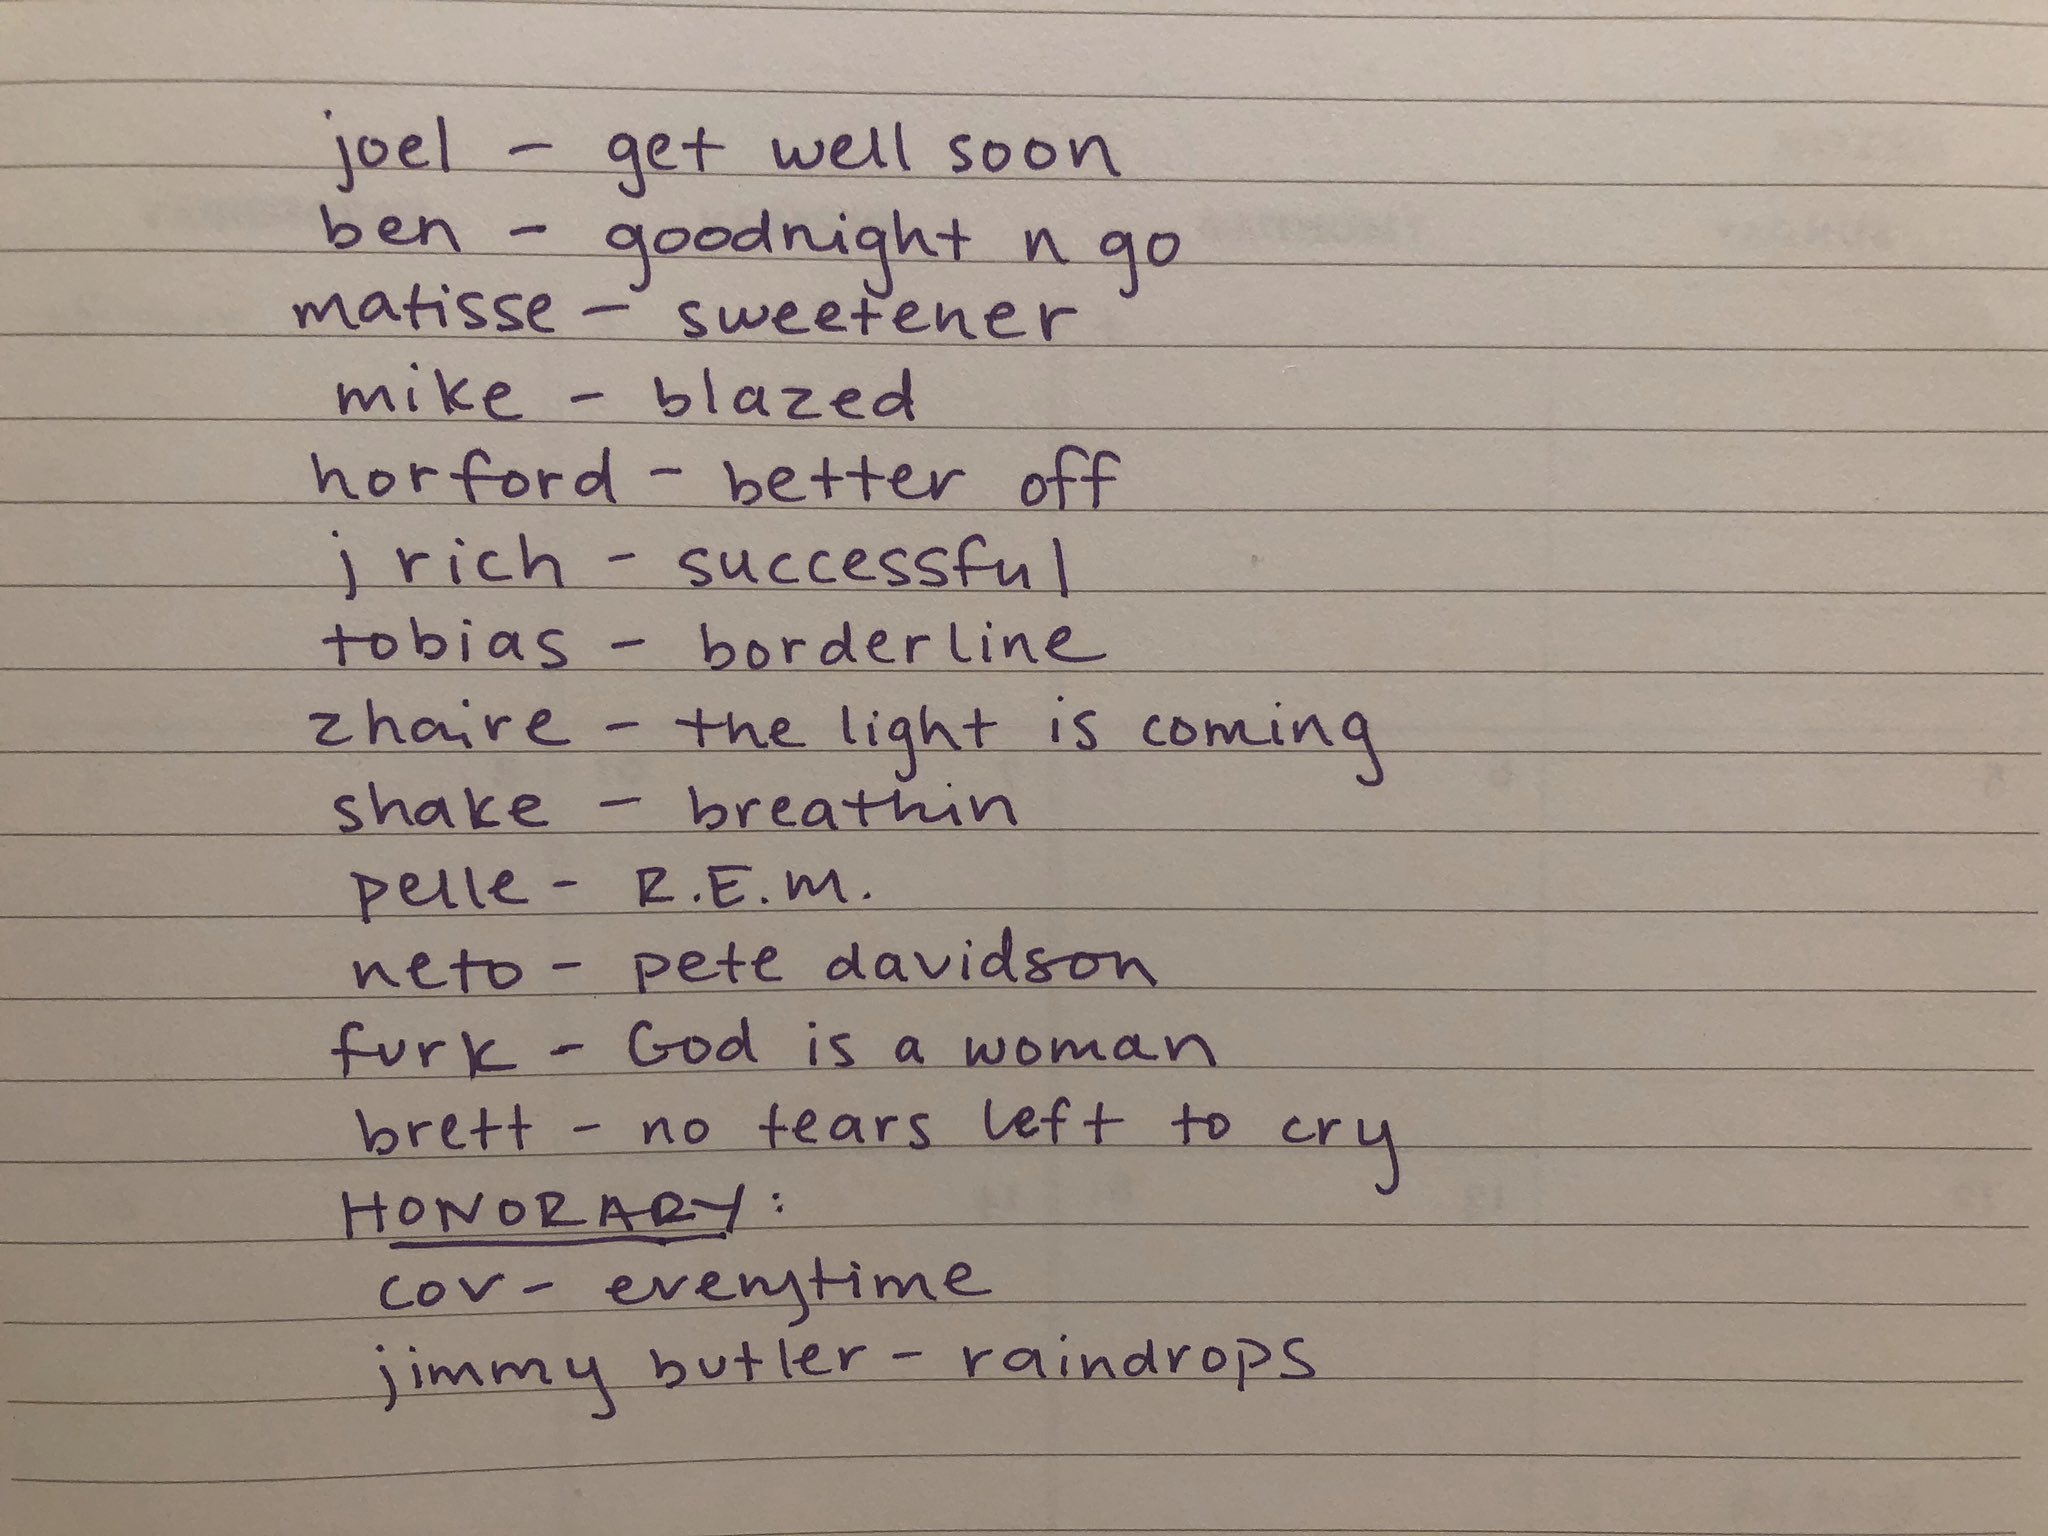 joel - get well soon
ben - goodnight n go
matisse - sweetener
mike - blazed
horford - better off
j rich - successful
tobias - borderline
zhaire - the light is coming
shake - breathin
pelle - R.E.M.
neto - pete davidson
furk - God is a woman
brett - no tears left to cry
HONORARY:
cov - everytime
jimmy butler - raindrops